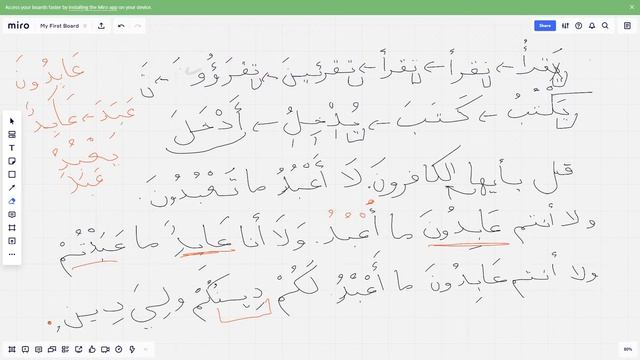 Access your boards faster by installing the Miro app on your device.
miro My First Board Share
عَابِدُونَ
يَقْرَأُ ← تَقْرَأُ ← تَقْرَأُ ← تَقْرَئِينَ ← تَقْرَؤُونَ ← نَ
عَبَدَ ← عَابِدٌ
يَكْتُبُ ← كَتَبَ ← يُدْخِلُ ← أَدْخَلَ
يَعْبُدُ
عَبَدَ
قل يأيها الكافرونَ. لَا أَعْبُدُ ما تَعْبُدُونَ.
ولا أنتم عَابِدُونَ ما أَعْبُدُ. وَلَا أَنَا عَابِدٌ ما عَبَدْتُمْ
ولا أنتم عَابِدُونَ ما أَعْبُدُ لَكُمْ دِينُكُمْ وَلِيَ دِينِ.
80%